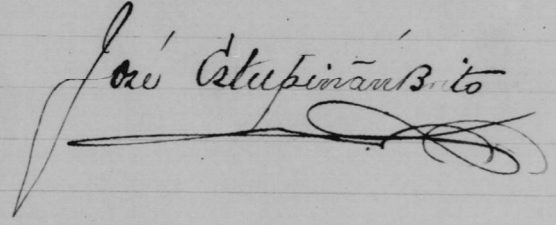 José Estupiñán Brito